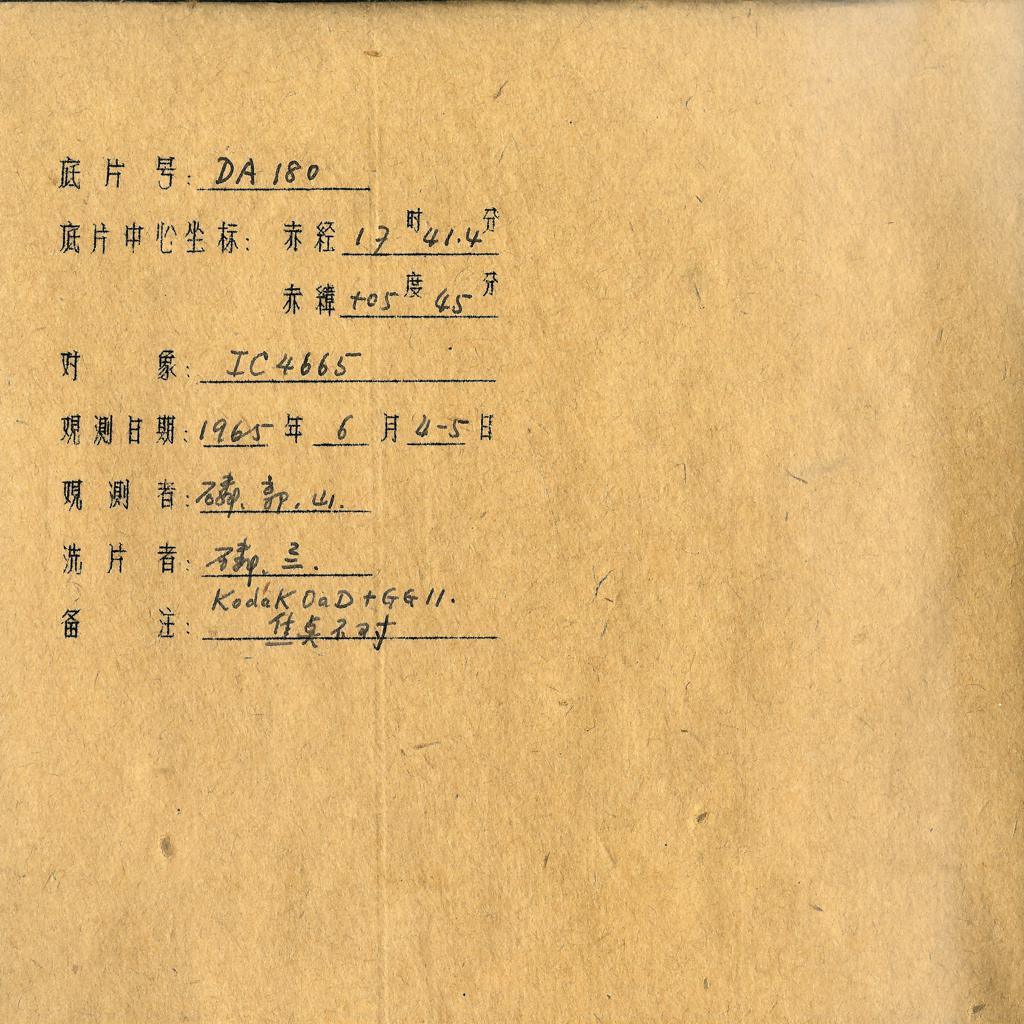 底片号: DA 180
底片中心坐标: 赤经 17时41.4分
赤纬 +05度 45分
对象: IC 4665
观测日期: 1965年 6月 4-5日
观测者: 郭. 山.
洗片者: 兰.
KodaK OaD + GG 11.
备注: 焦点不对